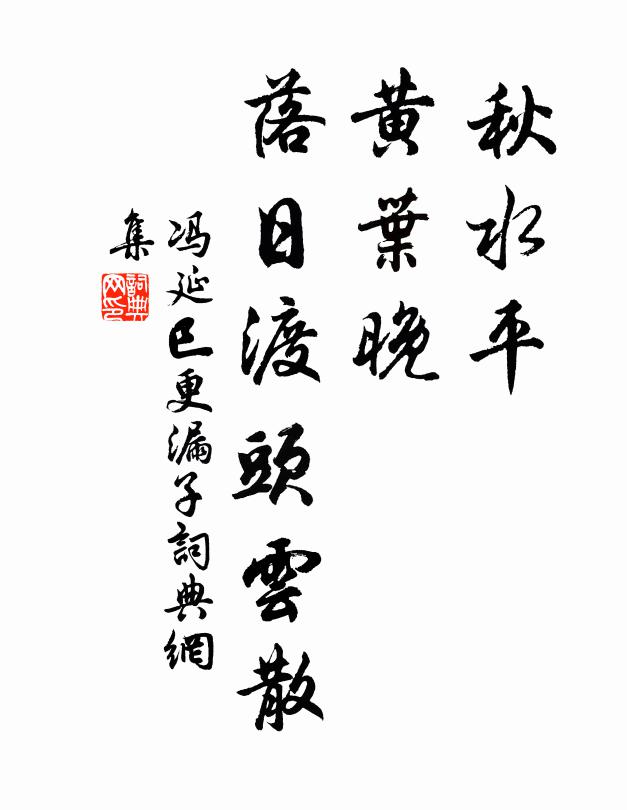 秋水平
黃葉晚
落日渡頭雲散
冯延巳更漏子詞典網
集
詞典
网印